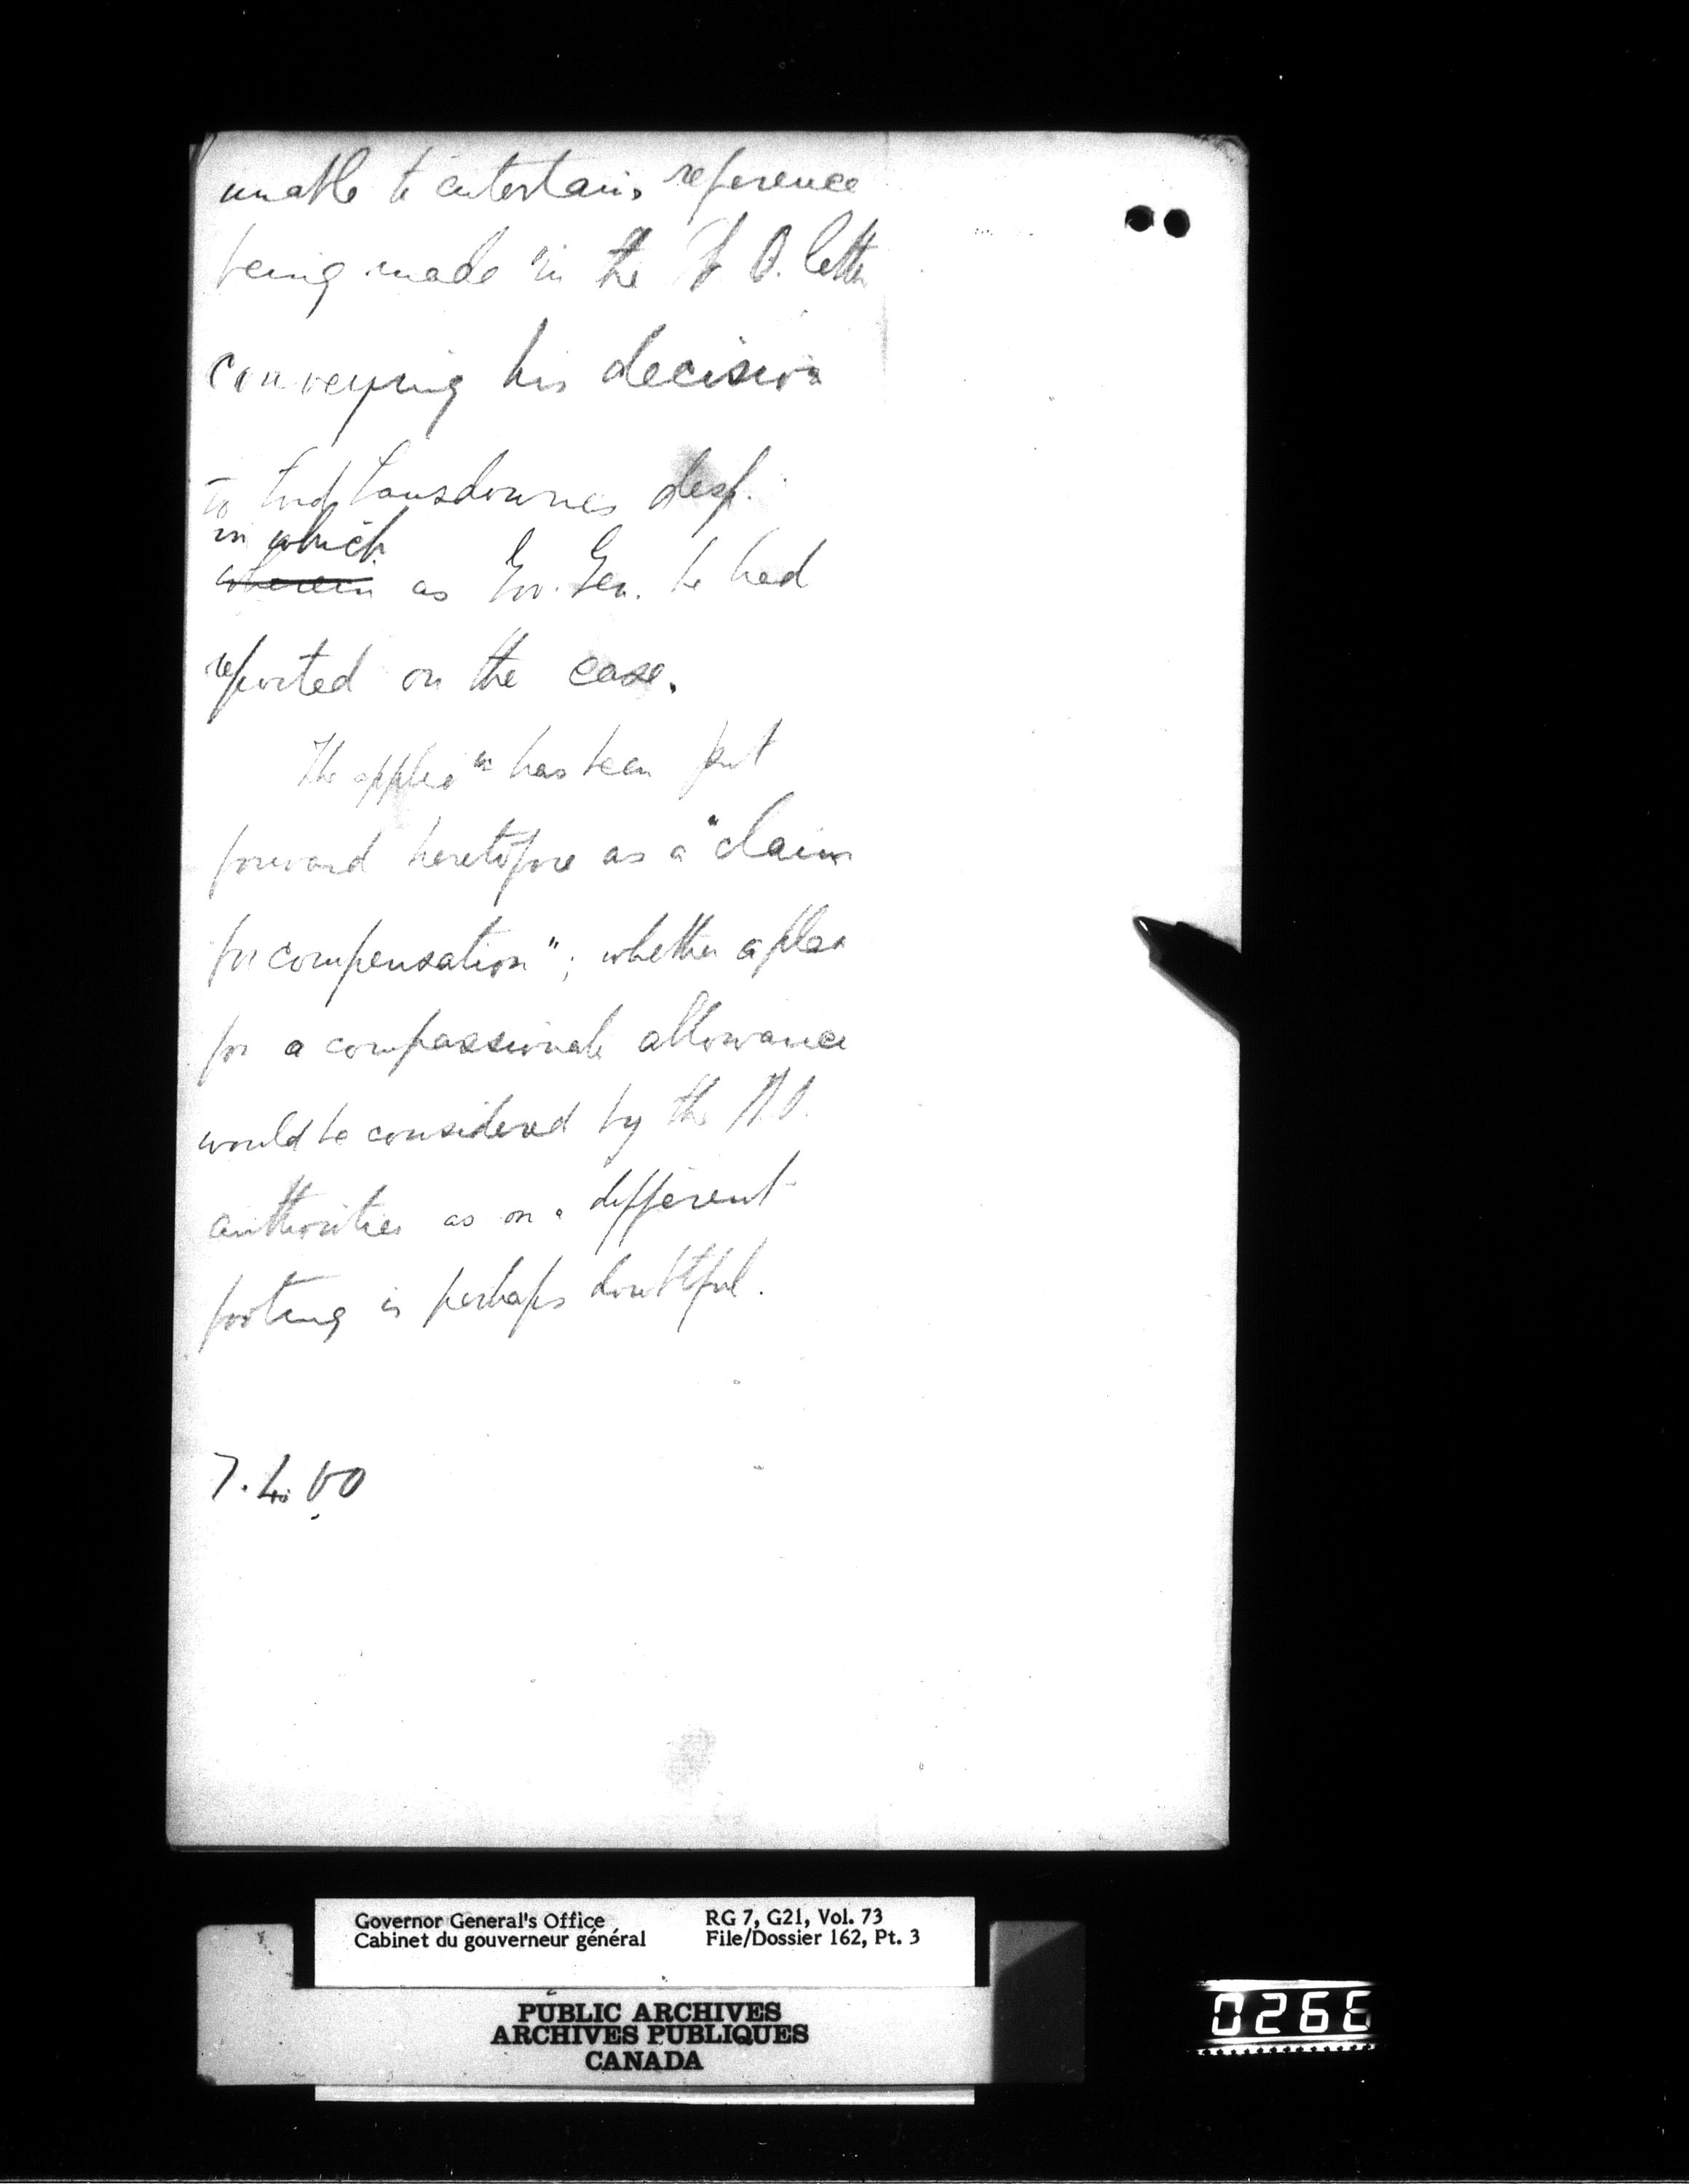 unable to entertain, reference
being made in the W. O. letter
conveying his decision
to Lord Lansdownes desp.
in which
wherein as Gov. Gen. he had
reported on the case.
The applic'n has been put
forward heretofore as a "claim
for compensation"; whether a plea
for a compassionate allowance
would be considered by the W.O.
authorities as on a different
footing is perhaps doubtful.
7.4.00
Governor General's Office
Cabinet du gouverneur général
RG 7, G21, Vol. 73
File/Dossier 162, Pt. 3
PUBLIC ARCHIVES
ARCHIVES PUBLIQUES
CANADA
0266